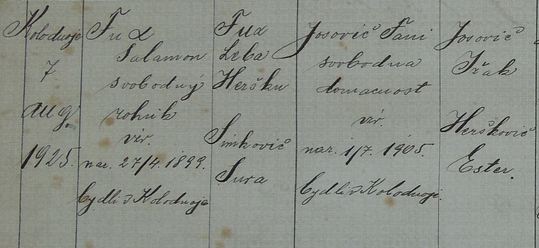 Kolodnoje
7
aug.
1925.
Fux
Salamon
svobodný
rolník
vír.
nar. 27/4. 1899.
bydli v Kolodnoje
Fux
Leba
Heršku
Simkovič
Sura
Josovič Fani
svobodna
domacnost
vír.
nar. 1/7. 1905.
bydli v Kolodnoje
Josovič
Iřak
Herškovič
Ester.